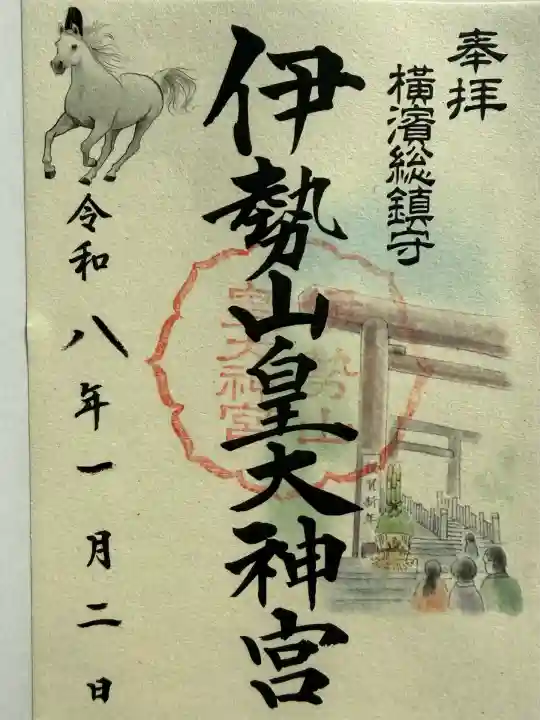 奉拝
横濱総鎮守
伊勢山皇大神宮
伊勢山
皇大神宮
謹賀新年
令和八年一月二日